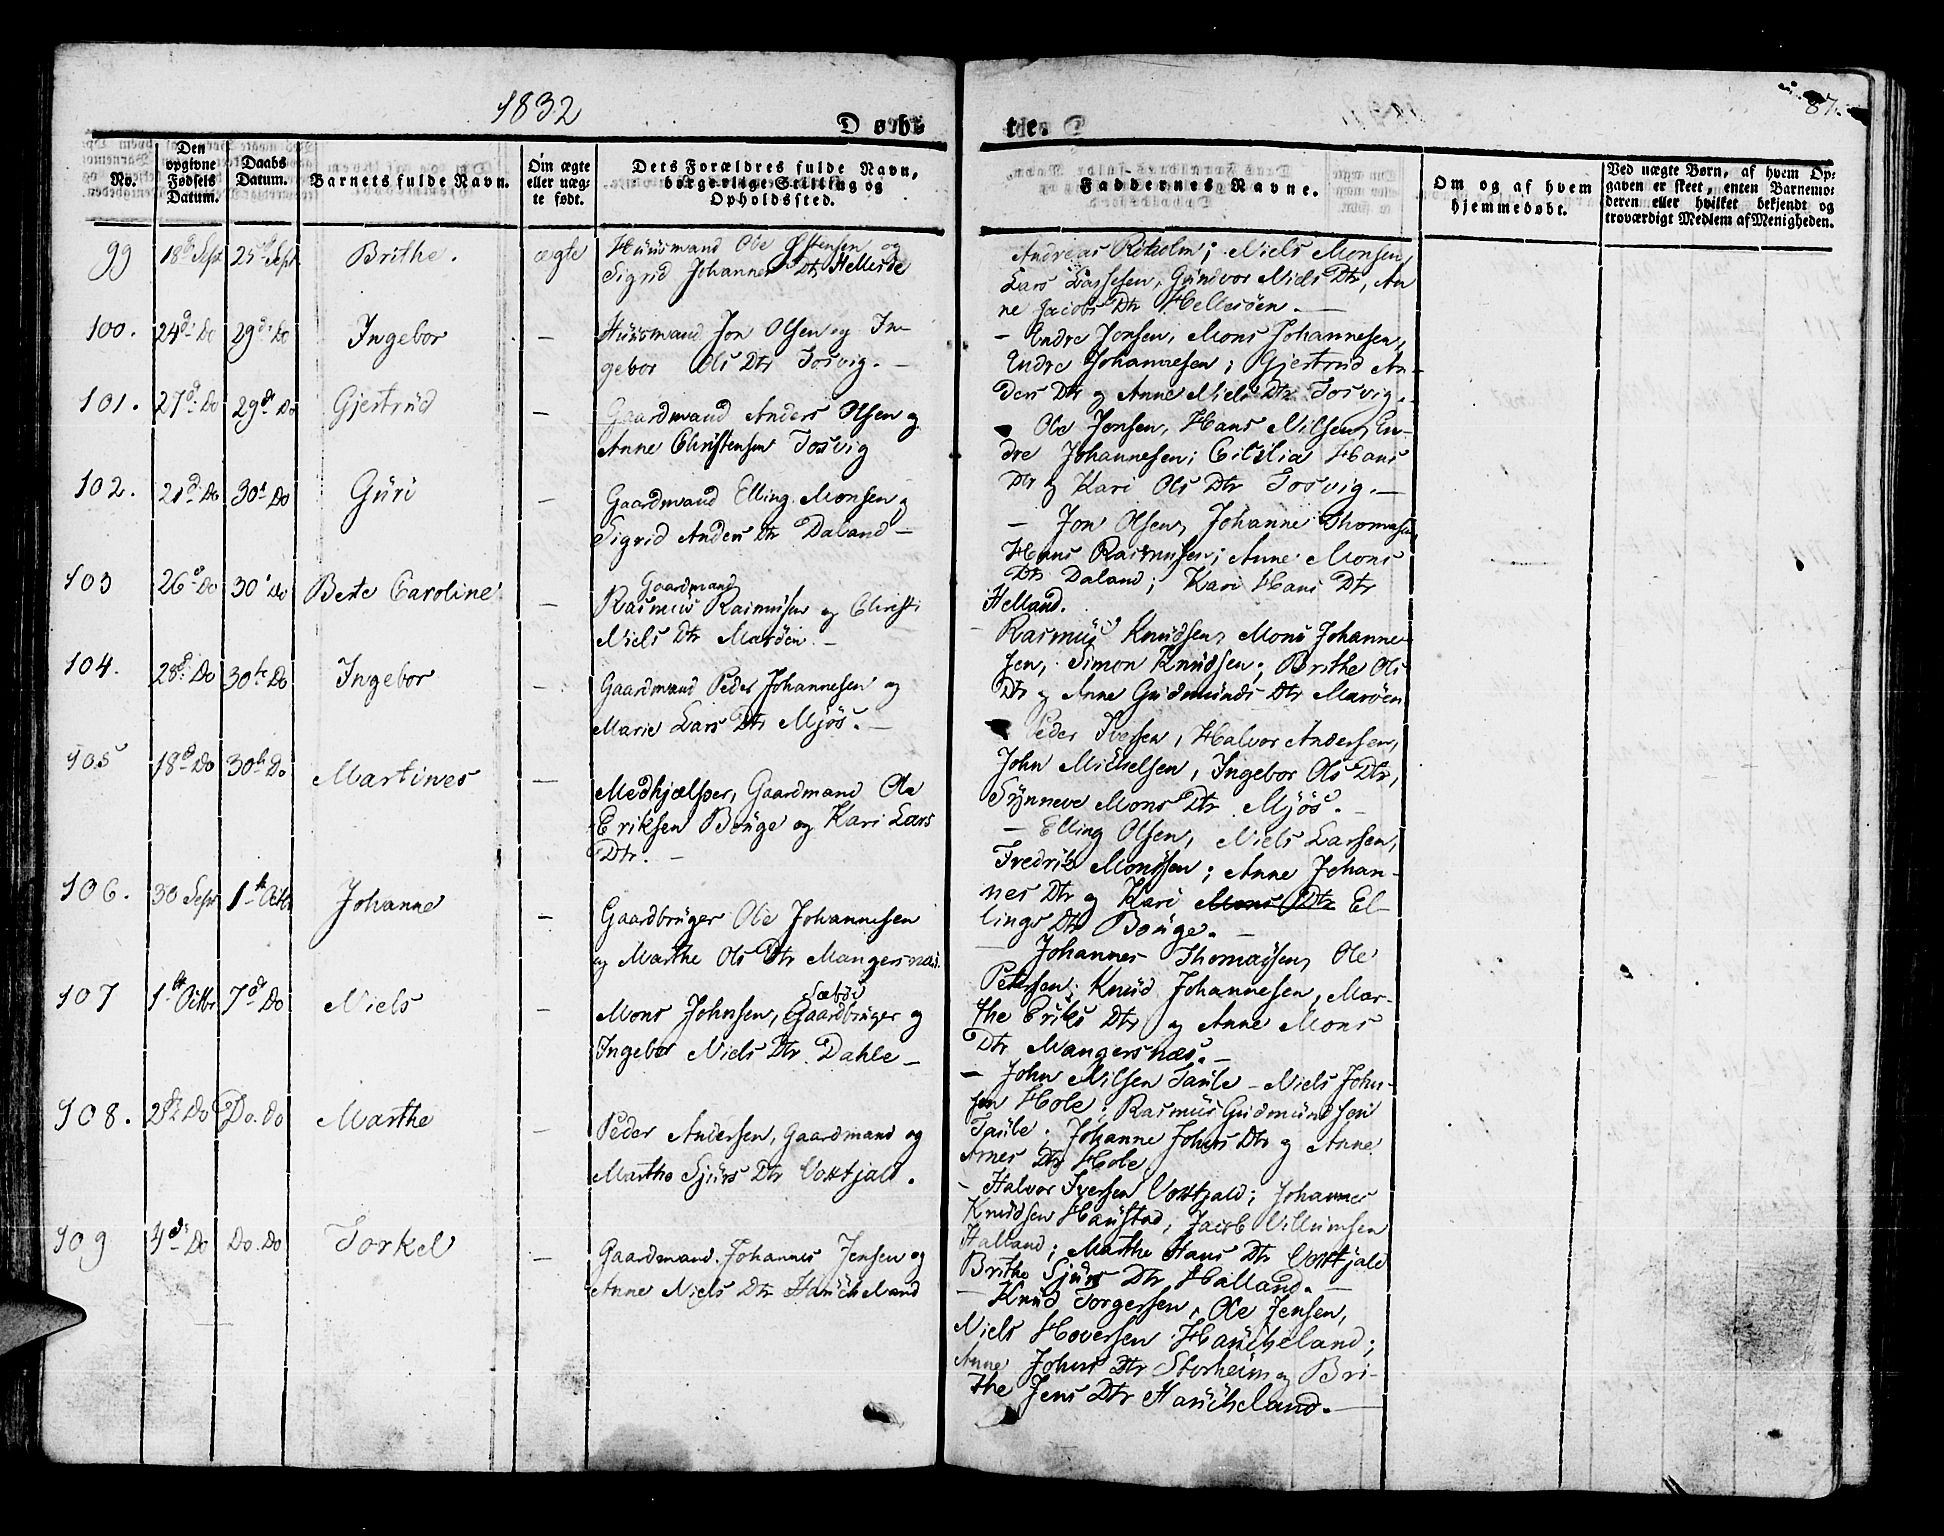 1832
Døbte.
87.
No.
Den opgivne Fødsels Datum.
Daabs Datum.
Barnets fulde Navn.
Om ægte eller uægte født.
Dets Forældres fulde Navn, borgerlige Stilling og Opholdssted.
Faddernes Navne.
Om og af hvem hjemmedøbt.
Ved uægte Børn, af hvem Opgaven er skeet, enten Barnemoderen eller hvilket bekjendt og troværdigt Medlem af Menigheden.
99 18d Sept 25d Sept Brithe. ægte
Huusmand Ole Østensen og
Sigrid Johannes Dtr Hellesöe
Andreas Risholm; Niels Monsen,
Lars Lassesen, Gundvor Niels Dtr, An
ne Jacobs Dtr Hellesöen. —
100. 24d Do 29d Do Ingebor —
Huusmand Jon Olsen og In-
gebor Ols Dtr Tosvig. —
— Endre Jonsen, Mons Johannesen,
Endre Johannesen; Gjertrud An-
ders Dtr og Anne Niels Dtr Tosvig. —
101. 27d Do 29d Do Gjertrüd —
Gaardmand Anders Olsen og
Anne Christensen Tosvig
Ole Jonsen, Hans Nilsen, En-
dre Johannesen; Cicilia Hans
Dtr og Kari Ols Dtr Tosvig. —
102. 21d Do 30t Do Güri —
Gaardmand Elling Monsen og
Sigrid Anders Dtr Daland —
— Jon Olsen, Johanne Thomasen
Hans Rasmusen; Anne Mons
Dtr Daland; Kari Hans Dtr
Helland.
103 26d Do 30t Do Berte Caroline —
Gaardmand
Rasmus Rasmusen og Christi
Niels Dtr Maröen. —
— Rasmus Knudsen, Mons Johanne-
sen, Simon Knudsen; Brithe Ols
Dtr og Anne Gudmunds Dtr Maröen
104. 28d Do 30te Do Ingebor —
Gaardmand Peder Johannesen og
Marie Lars Dtr Mjös. —
Peder Iversen, Halvor Andersen,
John Michelsen, Ingebor Ols Dtr,
Synneve Mons Dtr Mjös. —
105 18d Do 30te Do Martines —
Medhjælper, Gaardmand Ole
Eriksen Bouge og Kari Lars
Dtr. —
— Elling Olsen, Niels Larsen,
Fredrik Monssen; Anne Johan-
nes Dtr og Kari Mons Dtr El-
lings Dtr Bouge. —
106. 30 Sept 1te Octbr Johanne —
Gaardbrüger Ole Johannesen
og Marthe Ols Dtr Mangersnæs.
— Johannes Thomassen, Ole
Petersen; Knud Johannesen, Mar-
the Eriks Dtr og Anne Mons
Dtr Mangersnæs. —
107 1te Octbr 7d Do Niels —
Sæböe
Mons Johnsen, Gaardbrüger og
Ingebor Niels Dtr Dahle —
— John Nilsen Taule — Niels John-
sen Hole; Rasmus Gudmundsen
Taule. Johanne Johns Dtr og Anne
Arnes Dtr Hole
108. 2d Do Do. Do Marthe —
Peder Andersen, Gaardmand og
Marthe Sjurs Dtr Votjald.
— Halvor Iversen Votjald; Johannes
Knudsen Haustad, Jacob Villumsen
Halland; Marthe Hans Dtr Votjald
Brithe Sjurs Dtr Halland. —
109 4d Do Do. Do Torkel —
Gaardmand Johannes Jensen og
Anne Niels Dtr Haucheland
— Knud Torgersen, Ole Jensen,
Niels Hoversen Haucheland;
Anne Johns Dtr Storheim og Bri-
the Jens Dtr Haucheland. —